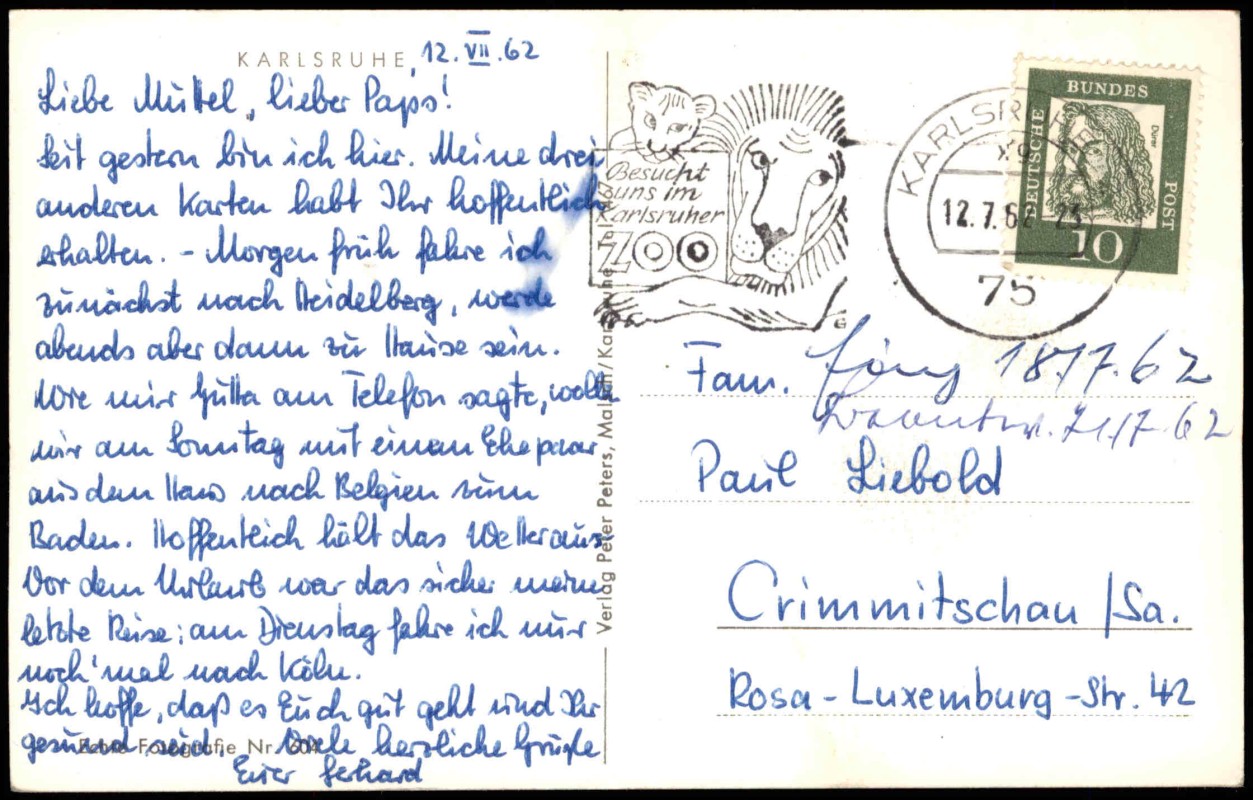 KARLSRUHE, 12. VII. 62
Liebe Muttel, lieber Paps!
Seit gestern bin ich hier. Meine drei
anderen Karten habt Ihr hoffentlich
erhalten. - Morgen früh fahre ich
zunächst nach Heidelberg, werde
abends aber dann zu Hause sein.
Wie mir Gutta am Telefon sagte, wollen
wir am Sonntag mit einem Ehepaar
aus dem Haus nach Belgien zum
Baden. Hoffentlich hält das Wetter aus.
Vor dem Urlaub war das sicher meine
letzte Reise; am Dienstag fahre ich nur
noch 'mal nach Köln.
Ich hoffe, daß es Euch gut geht und Ihr
gesund seid. Viele herzliche Grüße
Euer Gerhard
Echte Fotografie Nr. 604
Verlag Peter Peters, Malsch/Karlsruhe
Besucht
uns im
Karlsruher
ZOO
KARLSRUHE
12.7.62
75
DEUTSCHE
BUNDES
POST
Dürer
10
Fam. 18/7.62
21/7.62
Paul Liebold
Crimmitschau /Sa.
Rosa-Luxemburg-Str. 42